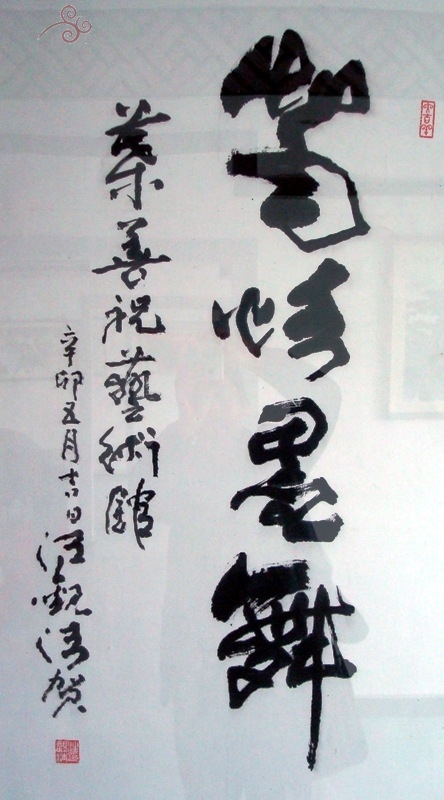 情墨舞
蔡善祝藝術館
辛卯五月吉日汪觀清賀